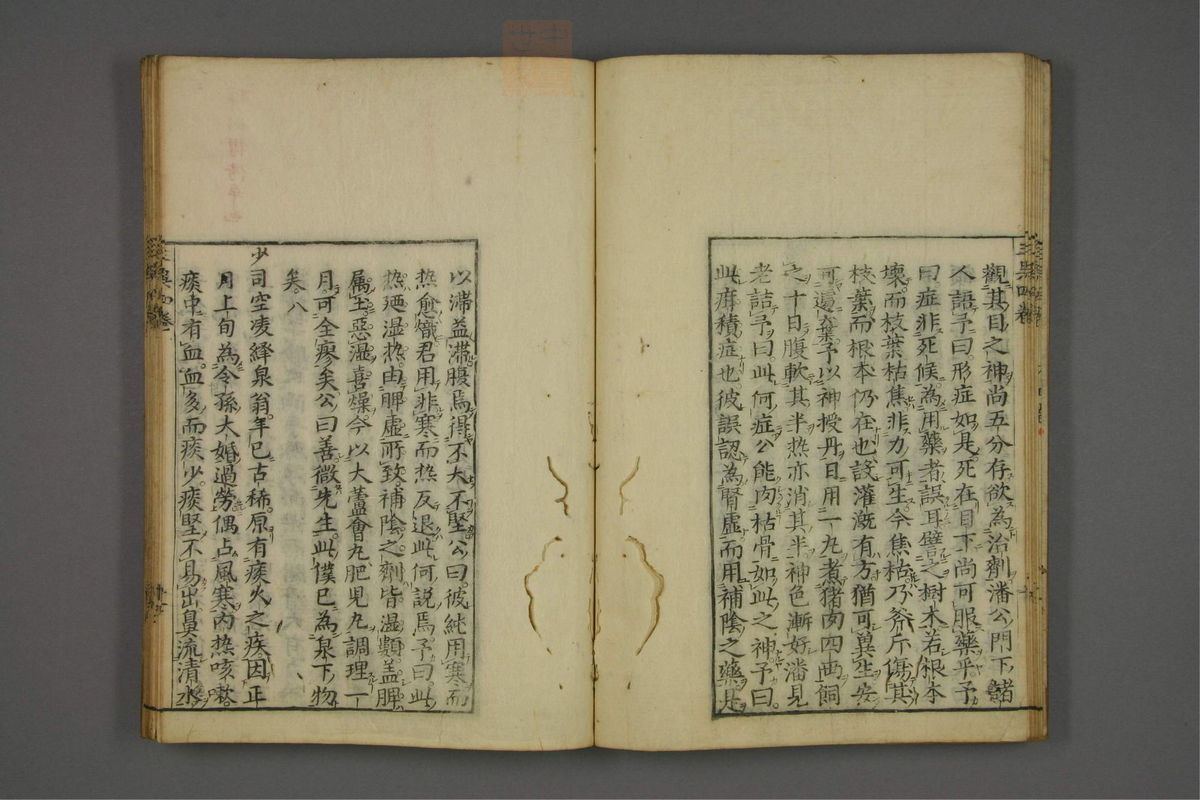 觀其目之神尚五分存欲為治劑潘公門下諸
人語予曰形症如是死在目下尚可服藥乎予
曰症非死候為用藥者誤耳譬之樹木若根本
壞而枝葉枯焦非力可生今焦枯乃斧斤傷其
枝葉而根本仍在也設灌漑有方猶可冀生安
可遽棄予以神授丹日用一丸煮猪肉四兩飼
之十日腹軟其半热亦消其半神色漸好潘見
老詰予曰此何症公能肉枯骨如此之神予曰
此疳積症也彼誤認為腎虚而用補陰之藥是
以滯益滯腹焉得不大不堅公曰彼純用寒而
热愈熾君用非寒而热反退此何説焉予曰此
热廼湿热由脾虚所致補陰之劑皆湿類盖脾
属土惡湿喜燥今以大蘆會丸肥児丸調理一
月可全瘳矣公曰善微先生此僕已為泉下物
矣八
少司空凌繹泉翁年已古稀原有痰火之疾因正
月上旬為令孫大婚過勞偶占風寒内热咳嗽
痰中有血血多而痰少痰堅不易出鼻流清水